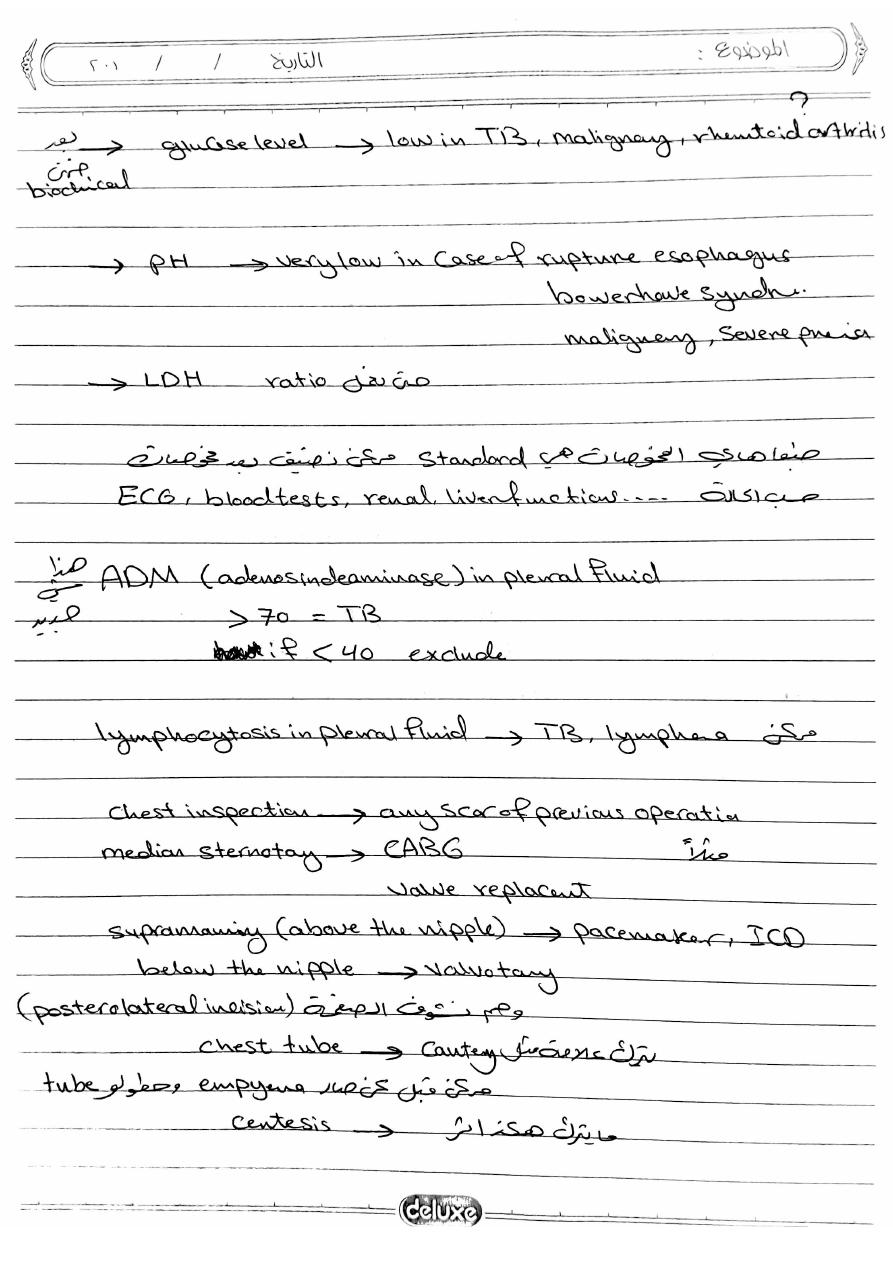 الموضوع :
التاريخ / / ٢٠١
?
بعد → glucose level → low in TB, malignacy, rhemtoid arthritis
biochical
→ PH → very low in case of rupture esophagus
bowerhave syndr..
maligneny, severe
→ LDH ratio
هي standard ممكن نضيف بعد فحوصات
ECG, blood tests, renal, liver functions.... حسب الحالة
هذا ADM (adenosindeaminase) in pleural fluid
جديد > 70 = TB
if < 40 exclude
lymphocytosis in pleural fluid → TB, lymphoma ممكن
chest inspection → any scar of previous operation
median sternotay → CABG مثلاً
valve replacent
supramamiry (above the nipple) → pacemaker, ICD
below the nipple → valvotany
(posterolateral incision)
chest tube → يترك علامة مثل cautery
ممكن قبل empyema وحطولو tube
centesis → ما يترك هكذا اثر
deluxe